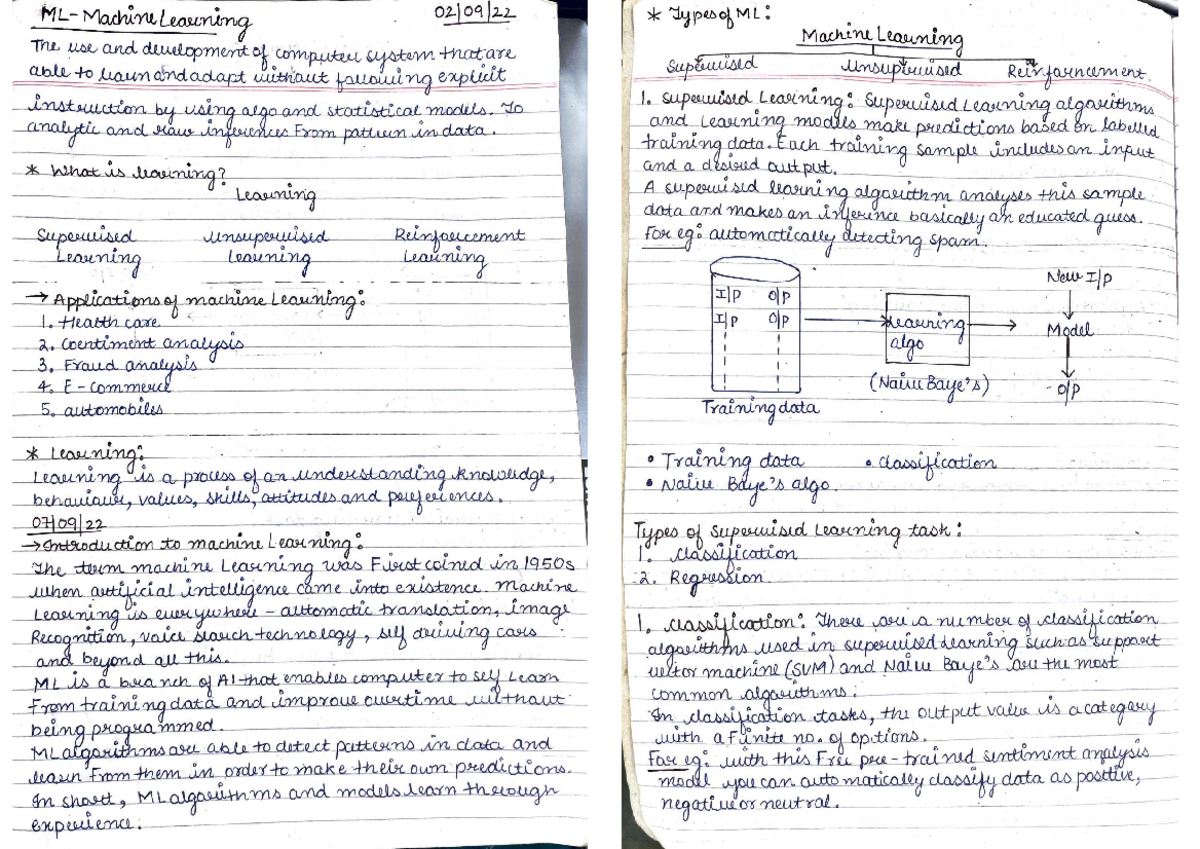 ML - Machine Learning
02/09/22
The use and development of computer system that are
able to learn and adapt without following explicit
instruction by using algo and statistical models. To
analytic and raw inferences From pattern in data.
* What is learning?
Learning
Supervised Unsupervised Reinforcement
Learning Learning Learning
→ Applications of machine Learning:
1. Health care
2. Coentiment analysis
3. Fraud analysis
4. E - commerce
5. automobiles
* Learning:
Learning is a process of an understanding knowledge,
behaviour, values, skills, attitudes and preferences.
07/09/22
→ Introduction to machine Learning:
The term machine Learning was First coined in 1950s
when artificial intelligence came into existence. Machine
Learning is everywhere - automatic translation, image
Recognition, voice search technology, self driving cars
and beyond all this.
ML is a branch of AI that enables computer to self Learn
From training data and improve overtime without
being programmed.
ML algorithms are able to detect patterns in data and
learn From them in order to make their own predictions.
In short, ML algorithms and models learn through
experience.
* Types of ML:
Machine Learning
Supervised Unsupervised Reinforncement
1. Supervised Learning: Supervised Learning algorithms
and Learning models make predictions based on labelled
training data. Each training sample includes an input
and a desired output.
A supervised learning algorithm analyses this sample
data and makes an inference basically an educated guess.
For eg: automatically detecting spam.
I/P O/P
I/P O/P
Training data
Learning
algo
(Naive Baye's)
New I/P
Model
O/P
• Training data • classification
• Naive Baye's algo.
Types of Supervised Learning task:
1. classification
2. Regression
1. classification: There are a number of classification
algorithms used in supervised Learning such as support
vector machine (SVM) and Naive Baye's are the most
common algorithms.
In classification tasks, the output value is a category
with a Finite no. of options.
For eg: with this Free pre-trained sentiment analysis
model you can automatically classify data as positive,
negative or neutral.